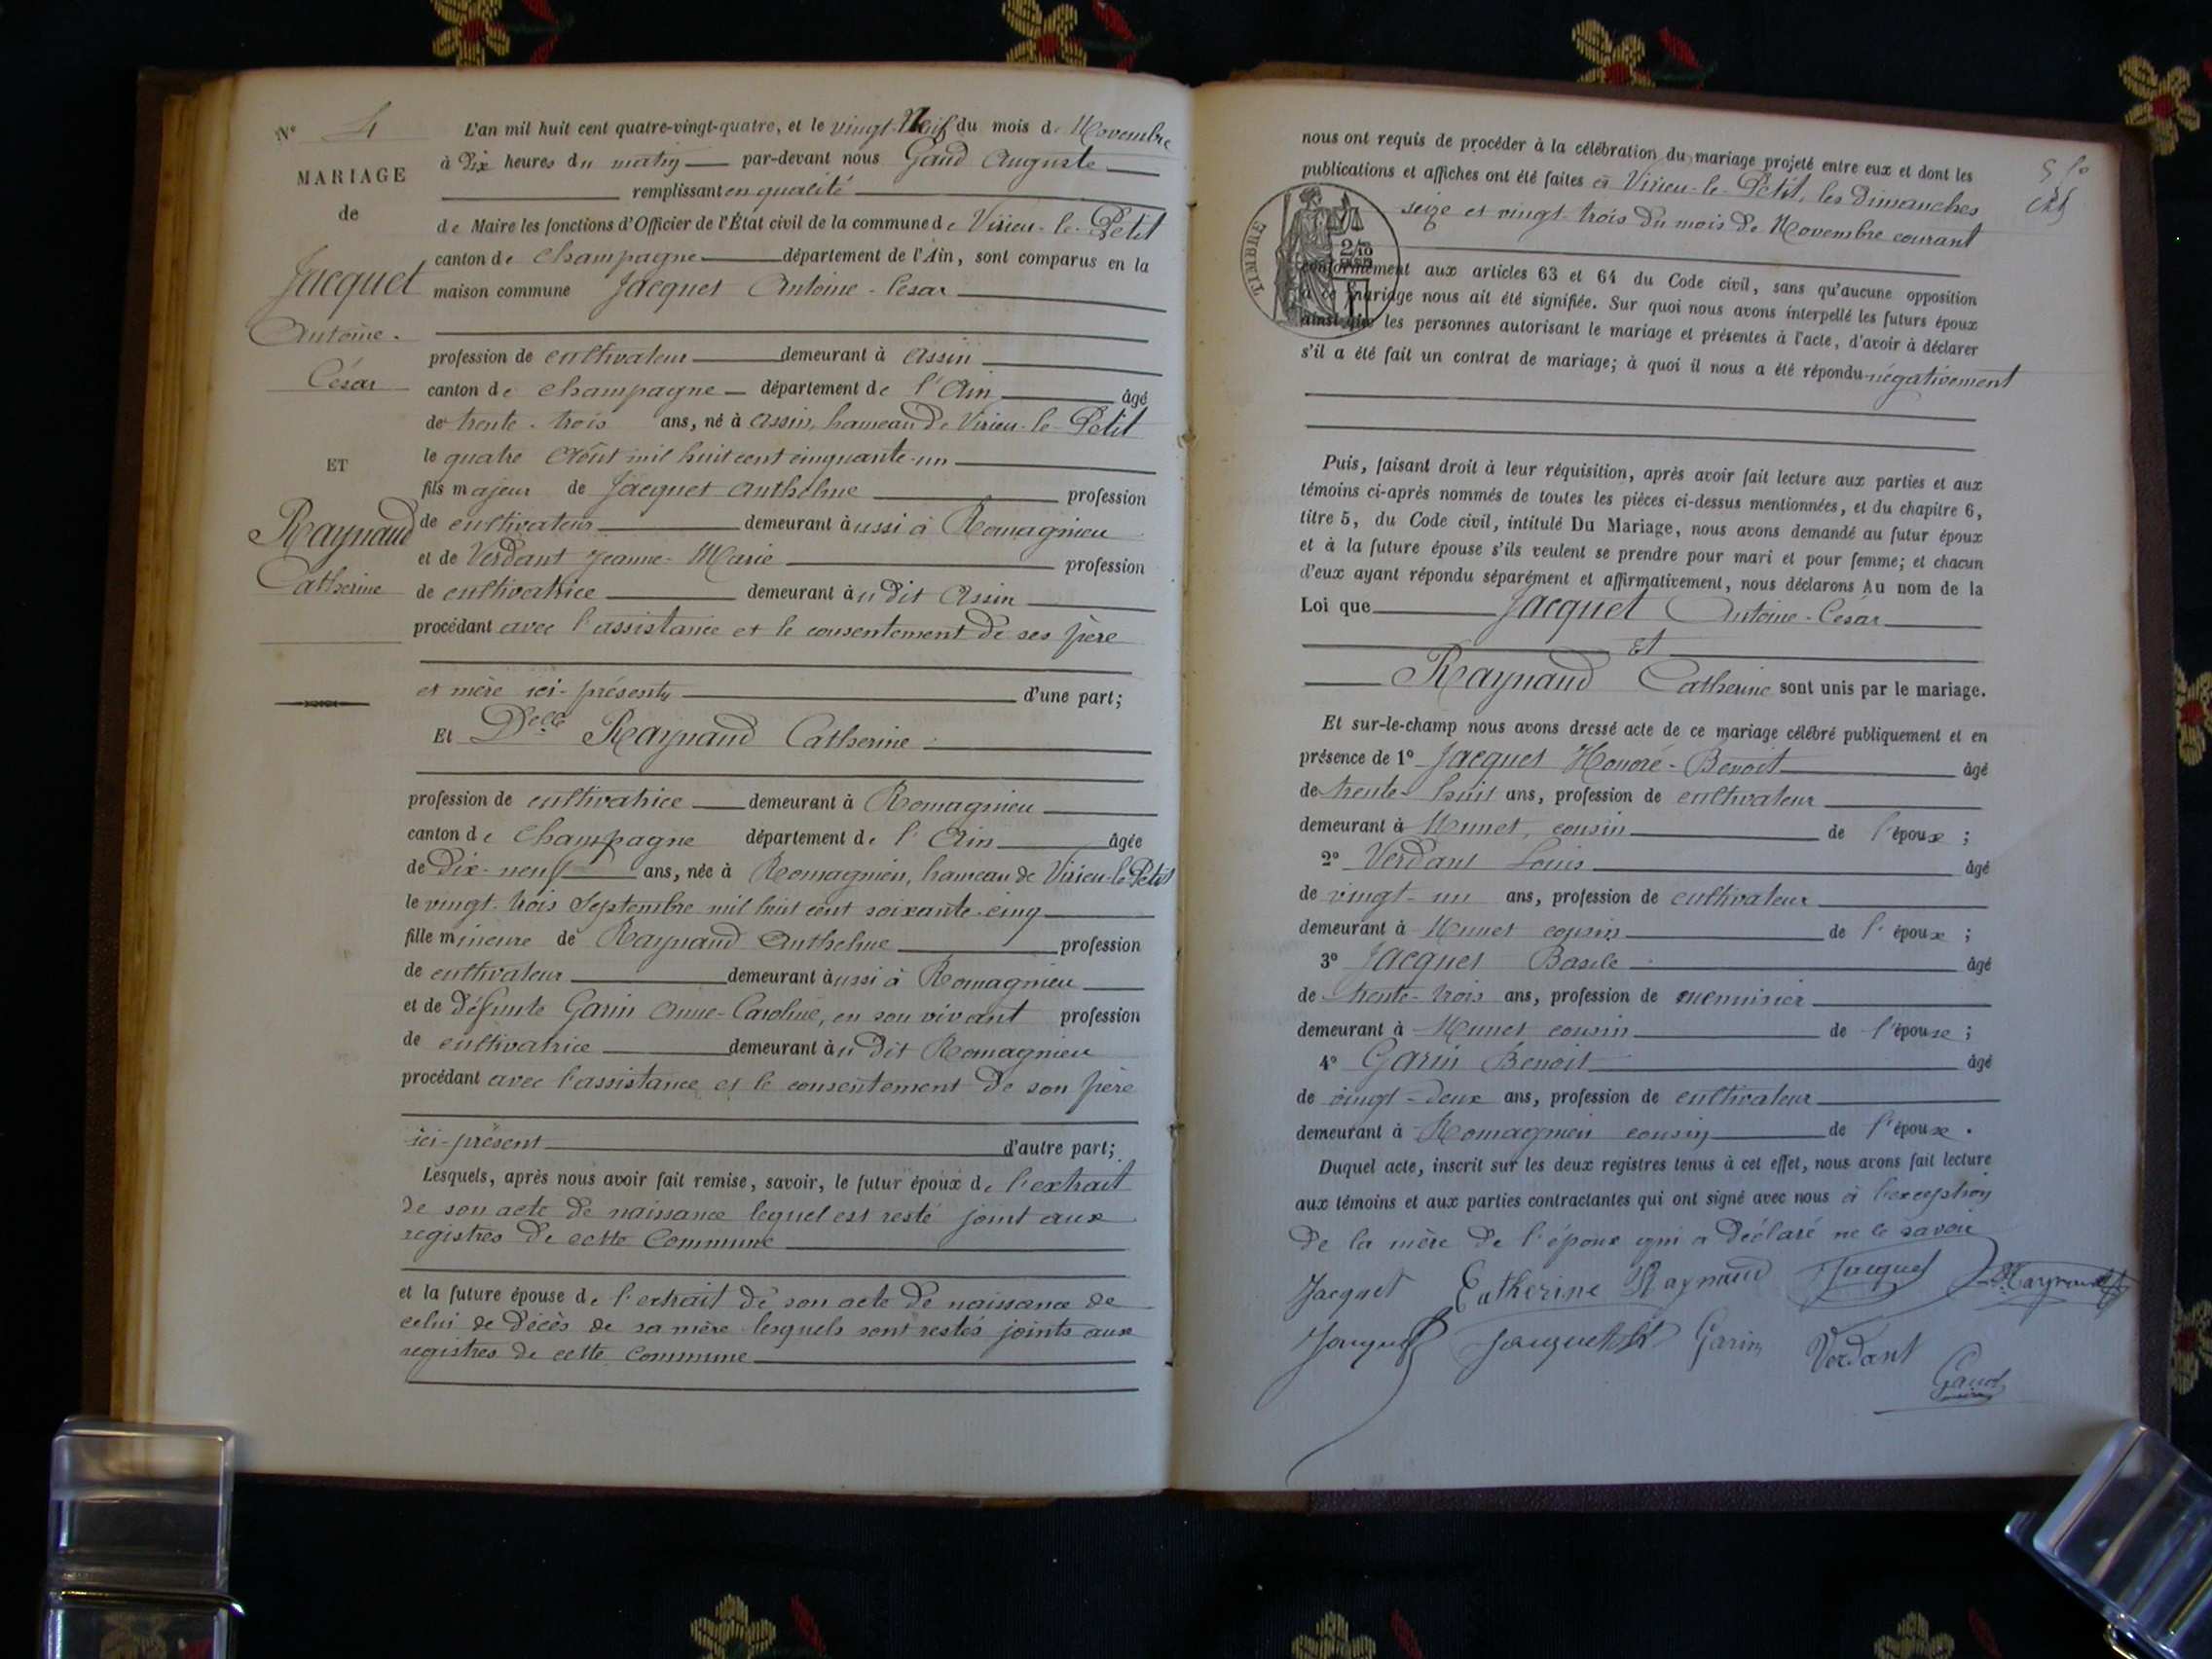 N° 4
MARIAGE
de
Jacquet
Antoine.
César
ET
Raynaud
Catherine
L'an mil huit cent quatre-vingt-quatre, et le vingt-Neuf du mois de Novembre
à Dix heures du matin par-devant nous Gaud Auguste
remplissant en qualité
de Maire les fonctions d'Officier de l'État civil de la commune de Virieu-le-Petit
canton de Champagne département de l'Ain, sont comparus en la
maison commune Jacquet Antoine-Cesar
profession de cultivateur demeurant à Assin
canton de Champagne département de l'Ain âgé
de trente-trois ans, né à Assin, hameau de Virieu-le-Petit
le quatre Août mil huit cent cinquante-un
fils majeur de Jacquet Anthelme profession
de cultivateur demeurant aussi à Romagnieu
et de Verdant Jeanne-Marie profession
de cultivatrice demeurant au dit Assin
procédant avec l'assistance et le consentement de ses père
et mère ici-présents d'une part;
Et Delle Raynaud Catherine
profession de cultivatrice demeurant à Romagnieu
canton de Champagne département de l'Ain âgée
de Dix-neuf ans, née à Romagnieu, hameau de Virieu-le-Petit
le vingt-trois Septembre mil huit cent soixante-cinq
fille mineure de Raynaud Anthelme profession
de cultivateur demeurant aussi à Romagnieu
et de défunte Garin Anne-Caroline, en son vivant profession
de cultivatrice demeurant au dit Romagnieu
procédant avec l'assistance et le consentement de son père
ici-présent d'autre part;
Lesquels, après nous avoir fait remise, savoir, le futur époux de l'extrait
de son acte de naissance lequel est resté joint aux
registres de cette Commune
et la future épouse de l'extrait de son acte de naissance de
celui de décès de sa mère lesquels sont restés joints aux
registres de cette Commune
nous ont requis de procéder à la célébration du mariage projeté entre eux et dont les
publications et affiches ont été faites à Virieu-le-Petit, les Dimanches
seize et vingt-trois du mois de Novembre courant
TIMBRE
conformément aux articles 63 et 64 du Code civil, sans qu'aucune opposition
à ce mariage nous ait été signifiée. Sur quoi nous avons interpellé les futurs époux
ainsi que les personnes autorisant le mariage et présentes à l'acte, d'avoir à déclarer
s'il a été fait un contrat de mariage; à quoi il nous a été répondu négativement
Puis, faisant droit à leur réquisition, après avoir fait lecture aux parties et aux
témoins ci-après nommés de toutes les pièces ci-dessus mentionnées, et du chapitre 6,
titre 5, du Code civil, intitulé Du Mariage, nous avons demandé au futur époux
et à la future épouse s'ils veulent se prendre pour mari et pour femme; et chacun
d'eux ayant répondu séparément et affirmativement, nous déclarons Au nom de la
Loi que Jacquet Antoine-César
et
Raynaud Catherine sont unis par le mariage.
Et sur-le-champ nous avons dressé acte de ce mariage célébré publiquement et en
présence de 1° Jacquet Honoré-Benoit âgé
de trente-huit ans, profession de cultivateur
demeurant à Munet, cousin de l'époux;
2° Verdant Louis âgé
de vingt-un ans, profession de cultivateur
demeurant à Munet cousin de l'époux;
3° Jacquet Basile âgé
de trente-trois ans, profession de menuisier
demeurant à Munet cousin de l'épouse;
4° Garin Benoit âgé
de vingt-deux ans, profession de cultivateur
demeurant à Romagnieu cousin de l'épouse.
Duquel acte, inscrit sur les deux registres tenus à cet effet, nous avons fait lecture
aux témoins et aux parties contractantes qui ont signé avec nous à l'exception
de la mère de l'époux qui a déclaré ne le savoir
Jacquet Catherine Raynaud Jacquet Raynaud
Jacquet Garin Verdant
Gaud